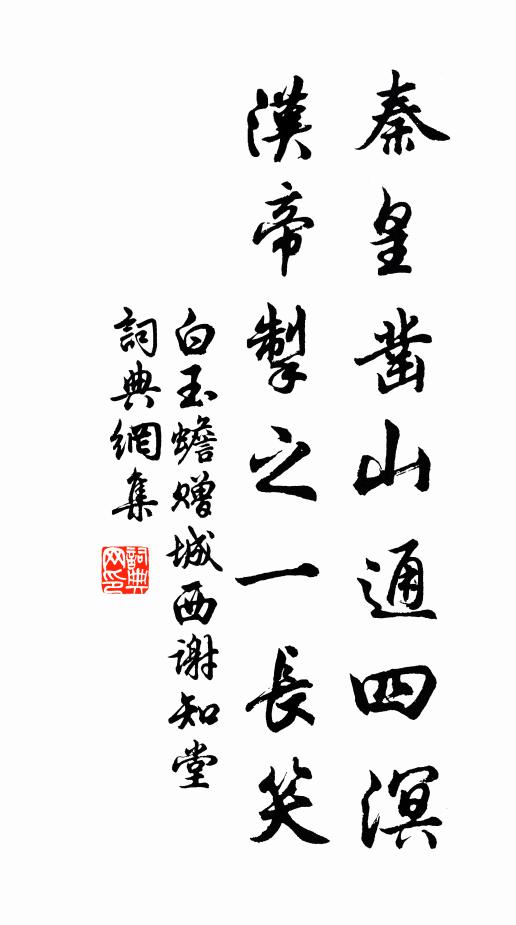 秦皇凿山通四溟
漢帝掣之一長笑
白玉蟾赠城西谢知堂
詞典網集
詞典网印